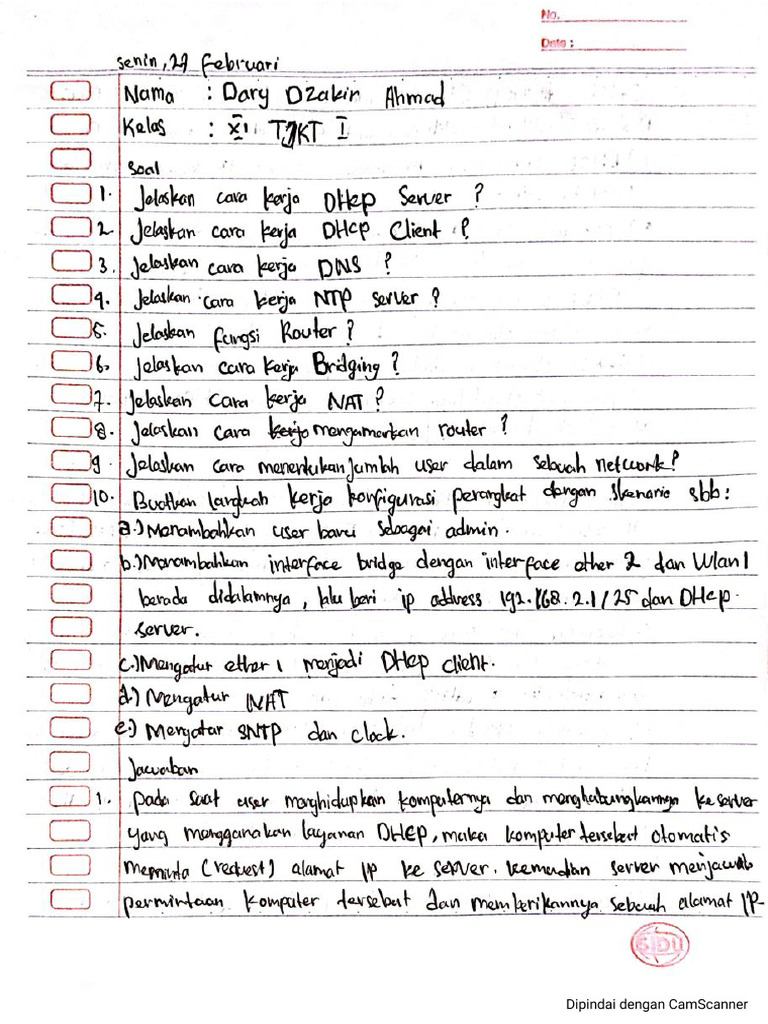 No.
Date :
Senin, 27 Februari
Nama : Dary Dzakir Ahmad
Kelas : XI TJKT I
Soal
1. Jelaskan cara kerja DHCP Server ?
2. Jelaskan cara kerja DHCP Client ?
3. Jelaskan cara kerja DNS ?
4. Jelaskan cara kerja NTP server ?
5. Jelaskan fungsi Router ?
6. Jelaskan cara kerja Bridging ?
7. Jelaskan cara kerja NAT ?
8. Jelaskan cara kerja mengamankan router ?
9. Jelaskan cara menentukan jumlah user dalam sebuah network ?
10. Buatkan langkah kerja konfigurasi perangkat dengan skenario sbb :
a.) Menambahkan user baru sebagai admin.
b.) Menambahkan interface bridge dengan interface ether 2 dan Wlan 1
berada didalamnya, lalu beri ip address 192.168.2.1/25 dan DHCP
server.
c.) Mengatur ether 1 menjadi DHCP client.
d.) Mengatur NAT
e.) Mengatur SNTP dan clock.
Jawaban
1. Pada saat user menghidupkan komputernya dan menghubungkannya ke server
yang menggunakan layanan DHCP, maka komputer tersebut otomatis
meminta (request) alamat IP ke server. kemudian server menjawab
permintaan komputer tersebut dan memberikannya sebuah alamat IP.
SIDU
Dipindai dengan CamScanner